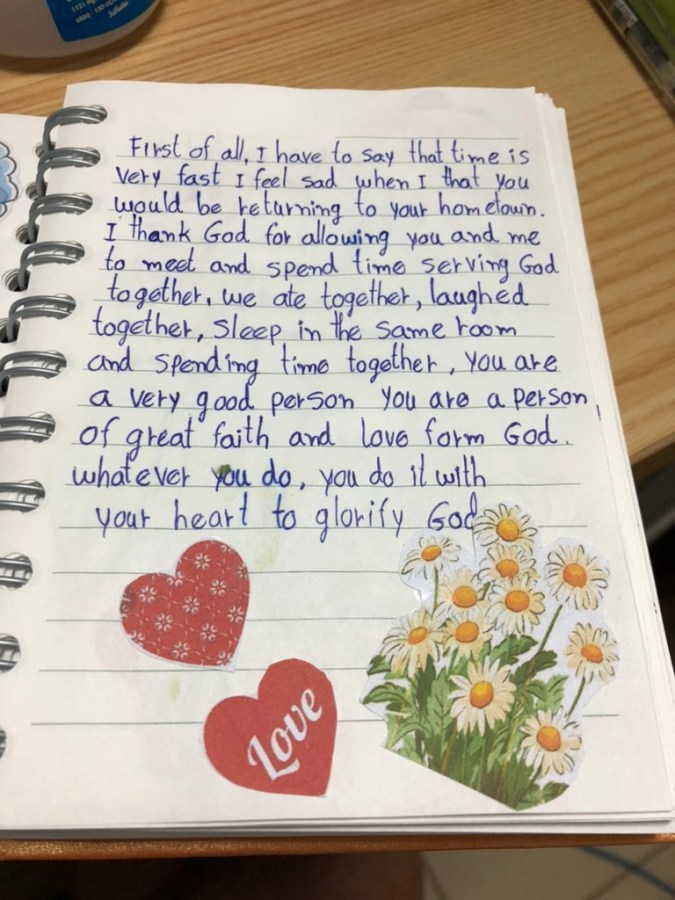 First of all, I have to say that time is
very fast I feel sad when I that you
would be returning to your hometown.
I thank God for allowing you and me
to meet and spend time serving God
together, we ate together, laughed
together, sleep in the same room
and spending time together, you are
a very good person you are a person
of great faith and love form God.
whatever you do, you do it with
your heart to glorify God
Love